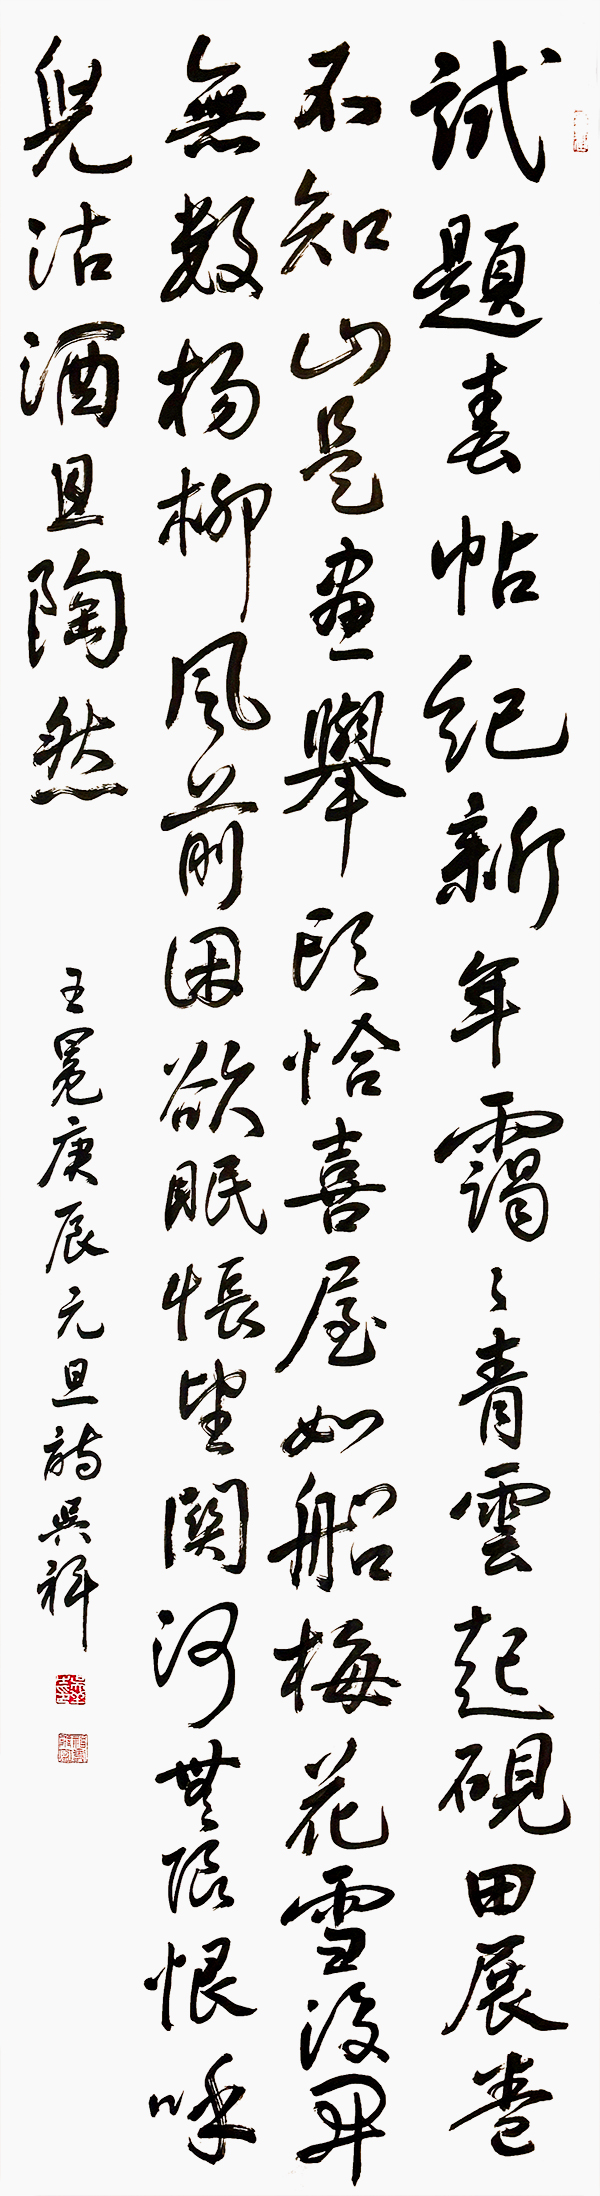 試題春帖紀新年靄〻青雲起硯田展卷
不知山是畫舉頭恰喜屋如船梅花雪後開
無數楊柳風前困欲眠悵望關河無限恨呼
兒沽酒且陶然
王冕庚辰元旦詩吳祥